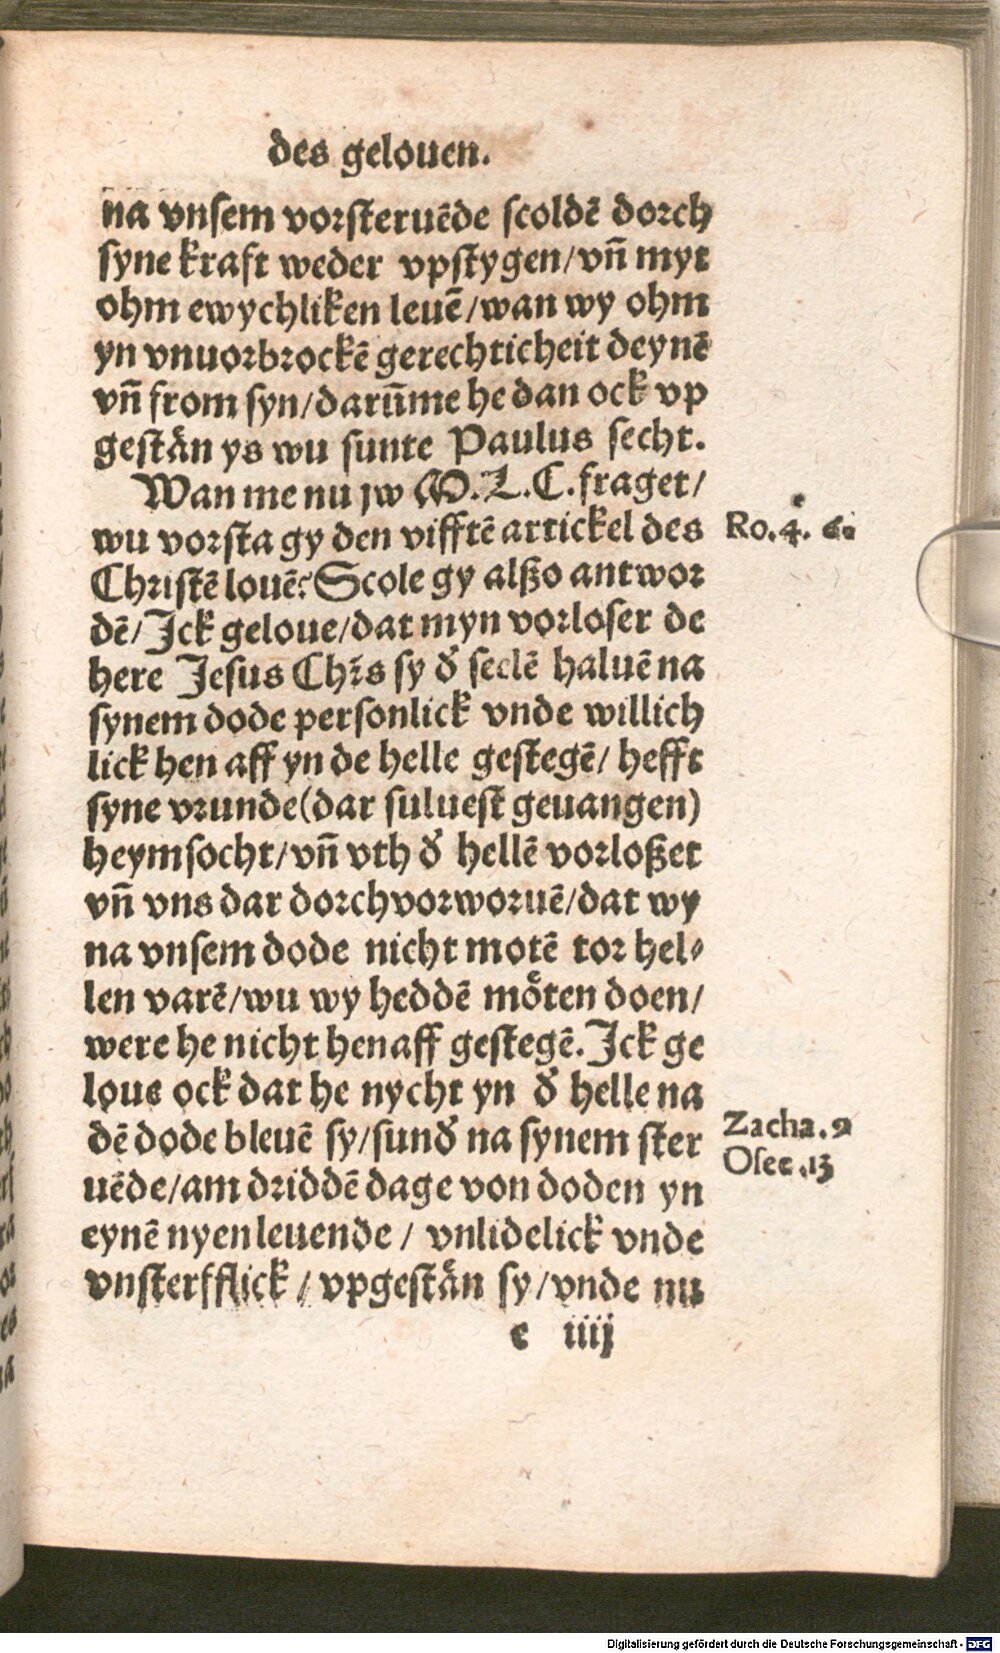 des gelouen.
na vnsem vorsteruēde scoldē dorch
syne kraft weder vpstygen/vñ myt
ohm ewychliken leuē/wan wy ohm
yn vnuorbrockē gerechticheit deynē
vñ from syn/darūme he dan ock vp
gestån ys wu sunte Paulus secht.
Wan me nu jw M.L.C.fraget/
wu vorsta gy den vifftē artickel des
Ro.4. 6.
Christē louē? Scole gy alßo antwor
dē/Jck geloue/dat myn vorloser de
here Jesus Chrs sy ď seelē haluē na
synem dode personlick vnde willich
lick hen aff yn de helle gestegē/ hefft
syne vrunde(dar suluest geuangen)
heymsocht/vñ vth ď hellē vorloßet
vñ vns dar dorchvorworuē/dat wy
na vnsem dode nicht motē tor hel⸗
len varē/wu wy heddē mo̊ten doen/
were he nicht henaff gestegē. Jck ge
loue ock dat he nycht yn ď helle na
dē dode bleuē sy/sunď na synem ster
Zacha.9
Osee.13
uēde/am driddē dage von doden yn
eynē nyen leuende/ vnlidelick vnde
vnsterfflick/vpgestån sy/vnde nu
e iiij
Digitalisierung gefördert durch die Deutsche Forschungsgemeinschaft - DFG